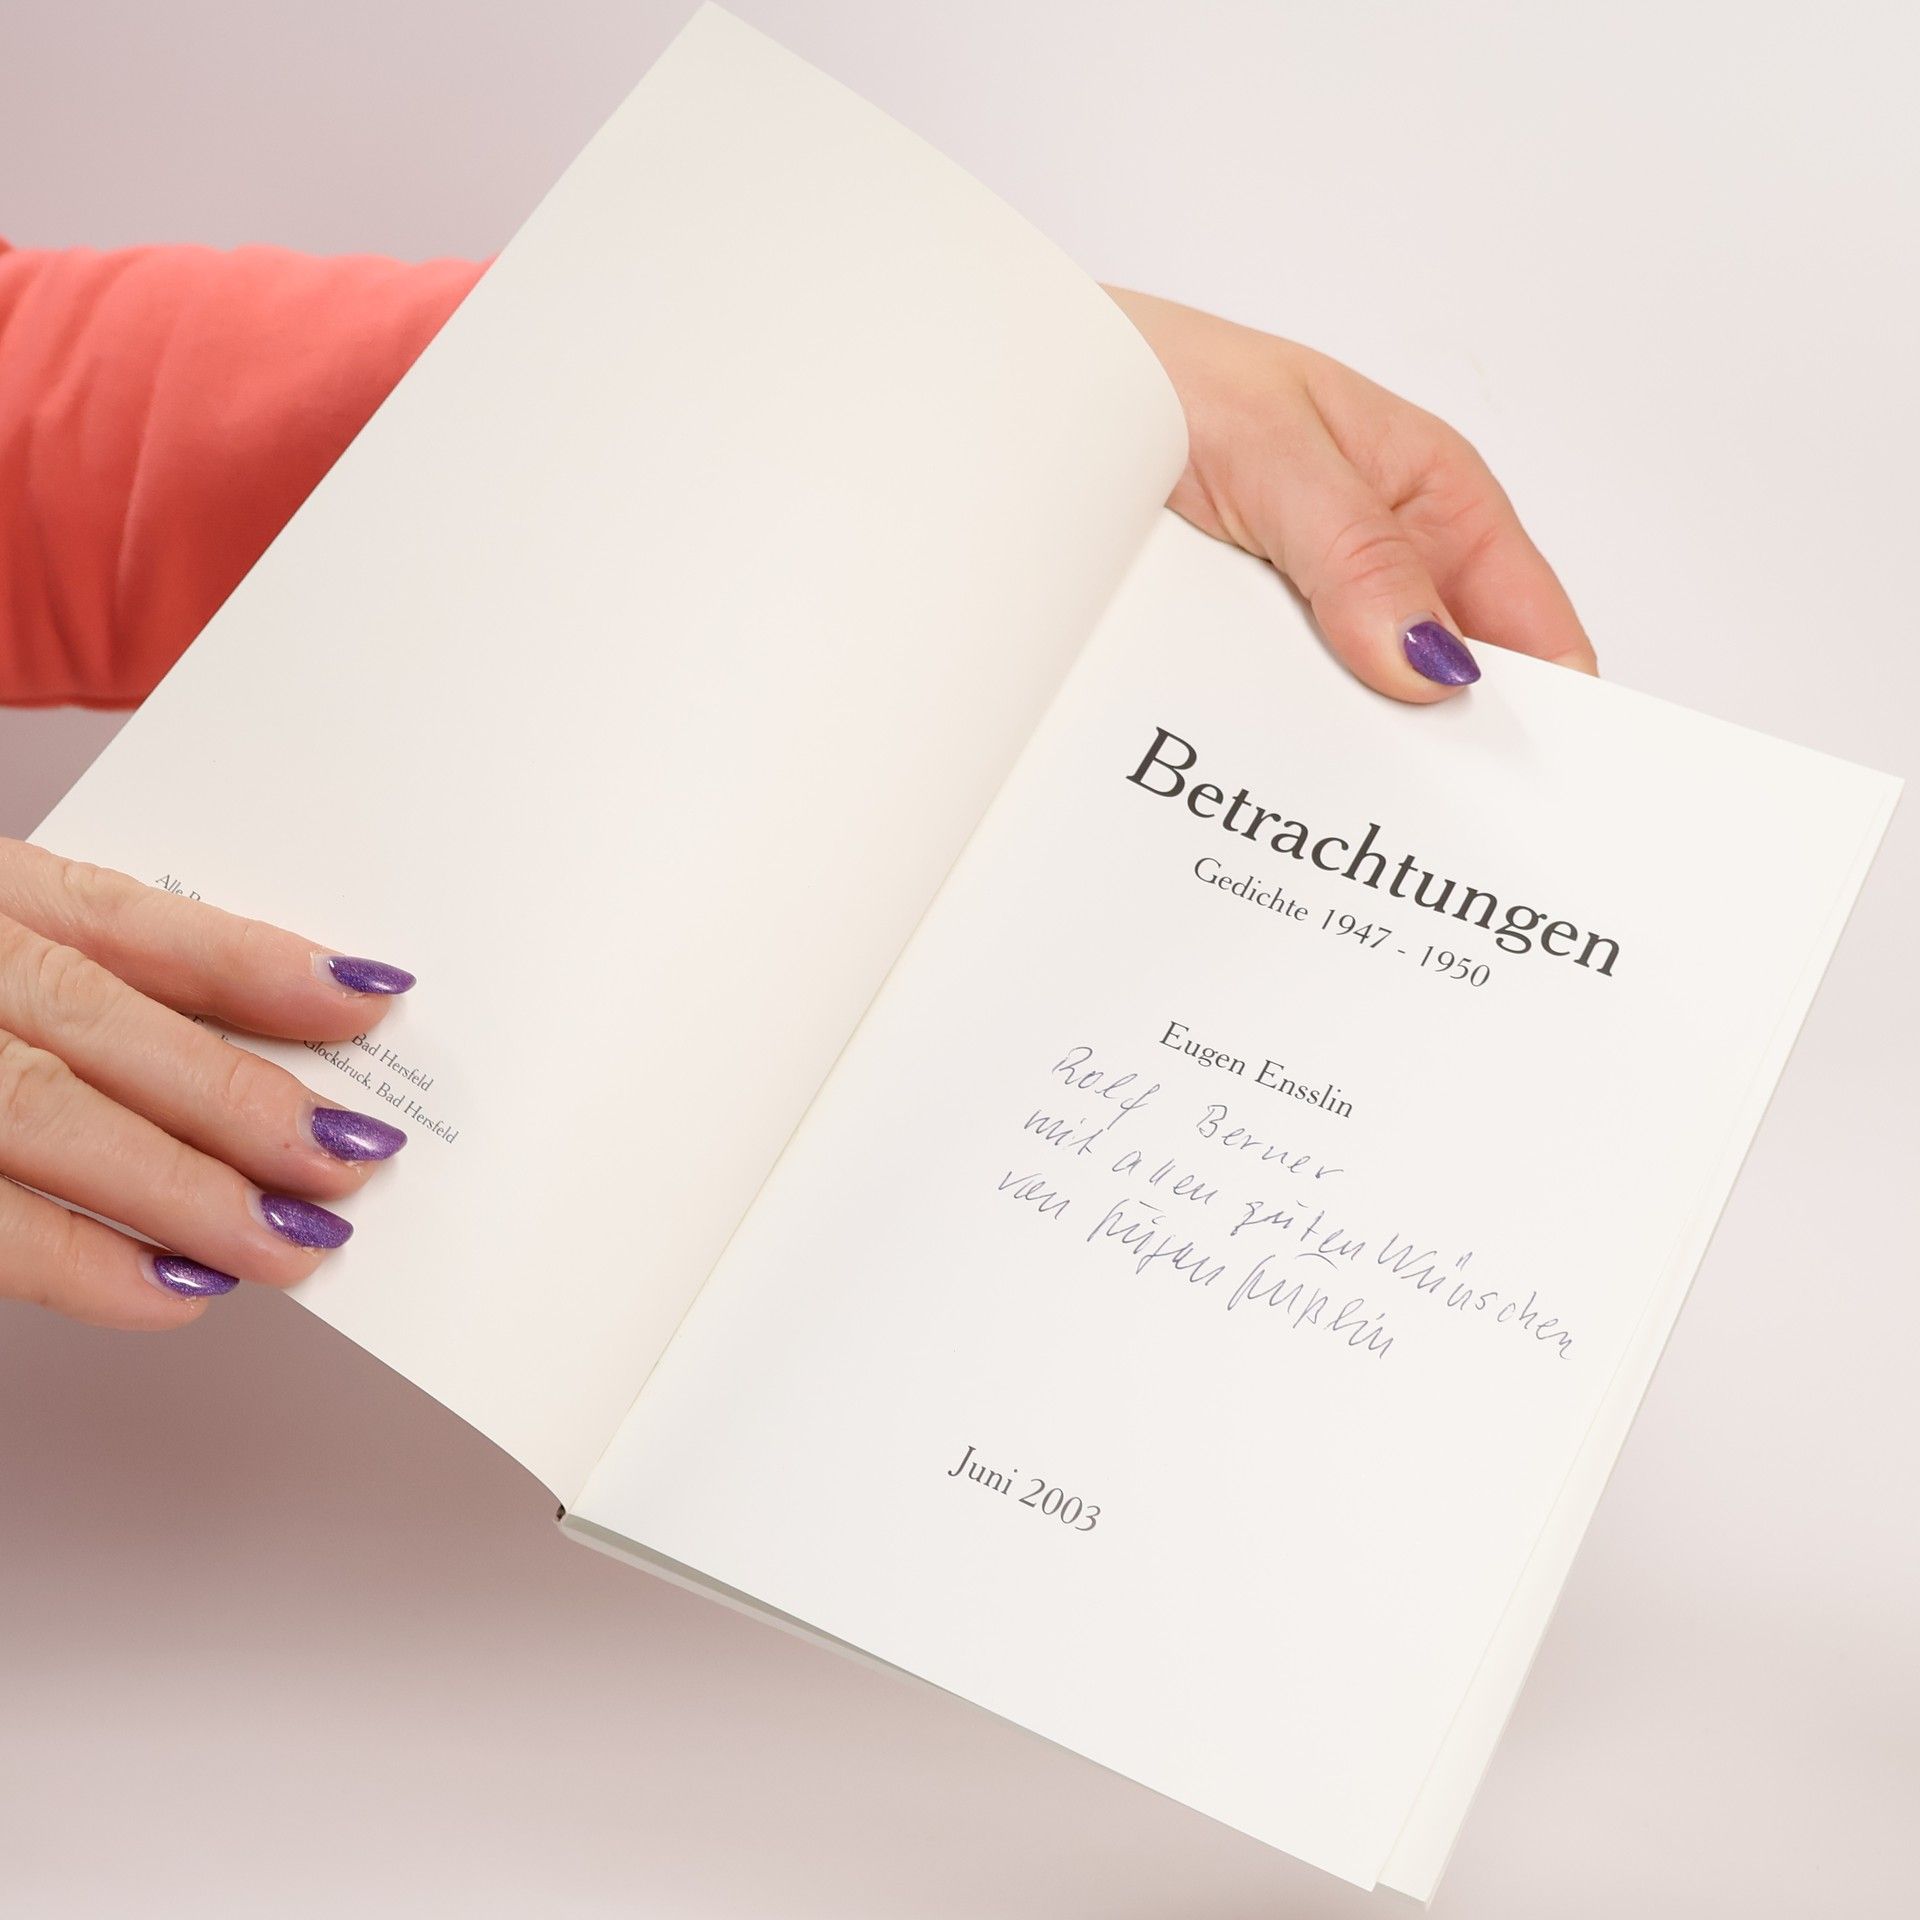 Alle
Bad Hersfeld
Glockdruck, Bad Hersfeld
Betrachtungen
Gedichte 1947 - 1950
Eugen Ensslin
Rolf Berner
mit allen guten Wünschen
von Eugen Enßlin
Juni 2003